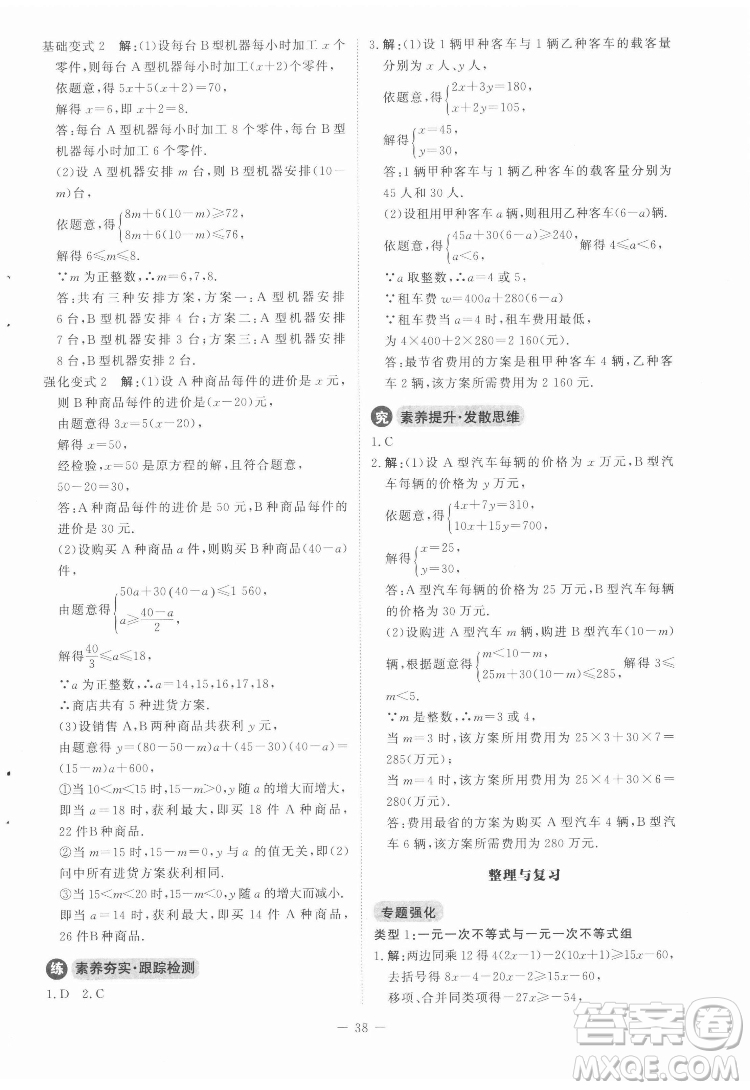 基础变式2 解:(1)设每台B型机器每小时加工x个
零件,则每台A型机器每小时加工(x+2)个零件,
依题意,得5x+5(x+2)=70,
解得x=6,即x+2=8.
答:每台A型机器每小时加工8个零件,每台B型
机器每小时加工6个零件.
(2)设A型机器安排m台,则B型机器安排(10-
m)台,
依题意,得{8m+6(10-m)≥72,
8m+6(10-m)≤76,
解得6≤m≤8.
∵m为正整数,∴m=6,7,8.
答:共有三种安排方案,方案一:A型机器安排
6台,B型机器安排4台;方案二:A型机器安排
7台,B型机器安排3台;方案三:A型机器安排
8台,B型机器安排2台.
强化变式2 解:(1)设A种商品每件的进价是x元,
则B种商品每件的进价是(x-20)元,
由题意得3x=5(x-20),
解得x=50,
经检验,x=50是原方程的解,且符合题意,
50-20=30,
答:A种商品每件的进价是50元,B种商品每件的
进价是30元.
(2)设购买A种商品a件,则购买B种商品(40-a)
件,
由题意得{50a+30(40-a)≤1 560,
a≥(40-a)/2,
解得40/3≤a≤18,
∵a为正整数,∴a=14,15,16,17,18,
∴商店共有5种进货方案.
(3)设销售A,B两种商品共获利y元,
由题意得y=(80-50-m)a+(45-30)(40-a)=
(15-m)a+600,
①当10<m<15时,15-m>0,y随a的增大而增大,
即当a=18时,获利最大,即买18件A种商品,
22件B种商品.
②当m=15时,15-m=0,y与a的值无关,即(2)
问中所有进货方案获利相同.
③当15<m<20时,15-m<0,y随a的增大而减小.
即当a=14时,获利最大,即买14件A种商品,
26件B种商品.
练 素养夯实·跟踪检测
1.D 2.C
3.解:(1)设1辆甲种客车与1辆乙种客车的载客量
分别为x人,y人,
依题意,得{2x+3y=180,
x+2y=105,
解得{x=45,
y=30,
答:1辆甲种客车与1辆乙种客车的载客量分别为
45人和30人.
(2)设租用甲种客车a辆,则租用乙种客车(6-a)辆,
依题意,得{45a+30(6-a)≥240,
a<6, 解得4≤a<6,
∵a取整数,∴a=4或5,
∵租车费w=400a+280(6-a)
∴租车费当a=4时,租车费用最低,
为4×400+2×280=2 160,
答:最节省费用的方案是租甲种客车4辆,乙种客
车2辆,该方案所需费用为2 160元.
究 素养提升·发散思维
1.C
2.解:(1)设A型汽车每辆的价格为x万元,B型汽
车每辆的价格为y万元,
依题意,得{4x+7y=310,
10x+15y=700,
解得{x=25,
y=30,
答:A型汽车每辆的价格为25万元,B型汽车每辆
的价格为30万元.
(2)设购进A型汽车m辆,则购进B型汽车(10-m)
辆,根据题意得{m<10-m,
25m+30(10-m)≤285, 解得3≤
m<5.
∵m是整数,∴m=3或4,
当m=3时,该方案所用费用为25×3+30×7=
285(万元);
当m=4时,该方案所用费用为25×4+30×6=
280(万元).
答:费用最省的方案是购进A型汽车4辆,B型汽
车6辆,该方案所需费用为280万元.
整理与复习
专题强化
类型1:一元一次不等式与一元一次不等式组
1.解:两边同乘12得4(2x-1)-(9x+2)≥15x-60,
去括号得8x-4-
移项、合并同类项得-27x≥-54,
— 38 —
答案卷
MXQE.COM